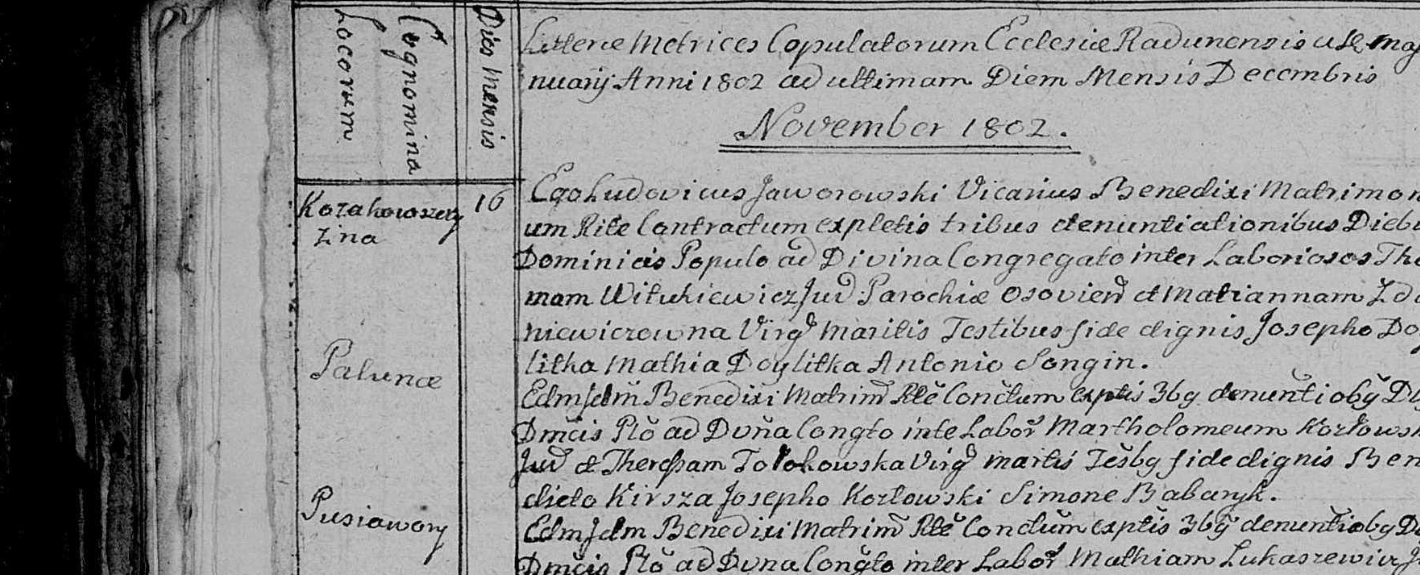 Cognomina
Locorum
Dies Mensis
Litterie Metrices Copulatorum Ecclesiæ Radunensis a
nuarij Anni 1802 ad ultimam Diem Mensis Decembris
November 1802.
Kozakowszczy
zna
16
Ego Ludovicus Jaworowski Vicarius Benedixi Matrimon
um Rite Contractum expletis tribus denuntiationibus Diebu
Dominicis Populo ad Divina Congregato inter Laboriosos Tho
mam Witukiewicz Juv̄ Parochiæ Osovien̄ et Mariannam Zda
niewiczowna Virḡ maritis Testibus fide dignis Josepho Doy
litka Mathia Doylitka Antonio Songin.
Palunæ
Edm Jdm̄ Benedixi Matrim̄ Rtē Conctum exptis 3bg denunti obg D
Dmcis Plō ad Dvna Longto inte Labor̄ Martholomeum Kozłowsk
Juv̄ et Theressam Tolohowska Virḡ martis Tesbg fide dignis Ben
dicto Kirsza Josepho Kozłowski Simone Babaryk.
Pusiawory
Edm Jdm Benedixi Matrim̄ Rtē Conctum exptis 3bg denunti obg D
Dmcis Plō ad Dvna Congto inter Labor̄ Mathiam Lukaszewicz J